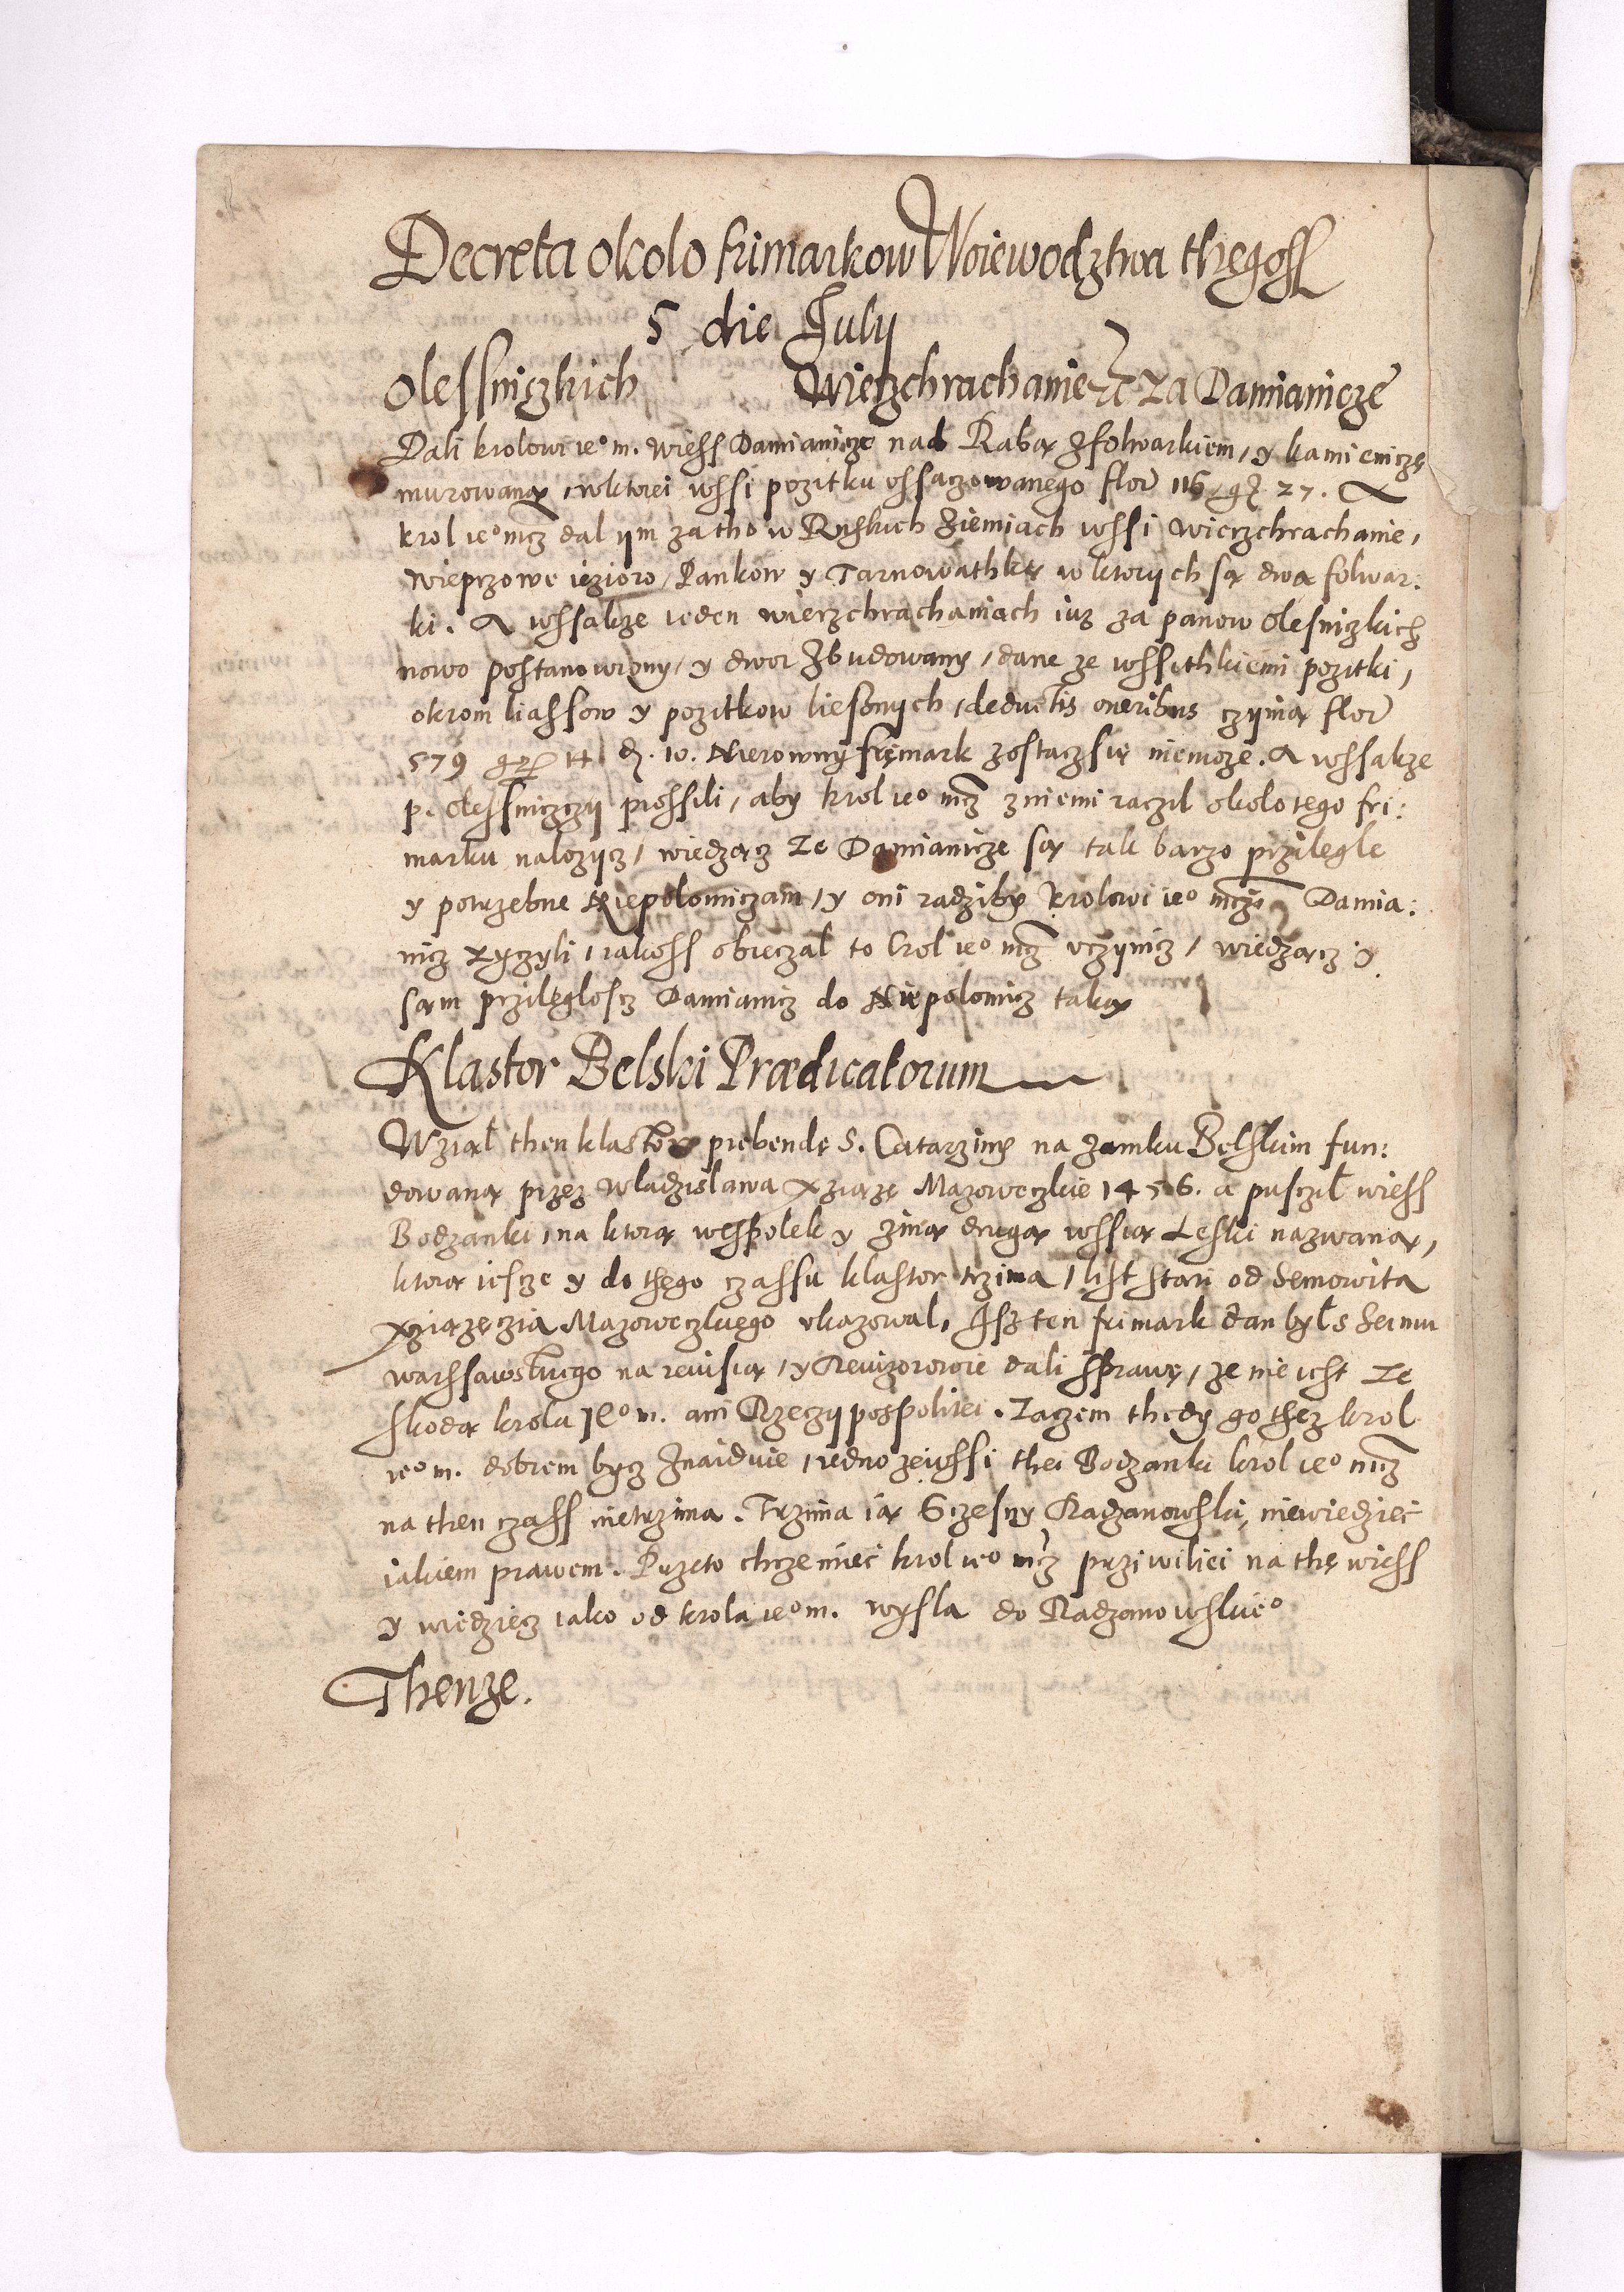 Decreta okolo frimarkow Woiewodztwa thegoss
5 die Julÿ
Olessniczkich Wierzchrachanie etc za Damianicze
Dali krolowi ieº m. wiess Damianicze nad Rabą zfolwarkiem, y kamieniczę
murowaną, wktorei wssi pozitku ossaczowanego flor 116 gr 27. A
krol ieº mcz dal ÿm za tho w Ruskich Ziemiach wssi Wierzchrachanie,
Wieprzowe iezioro, Pankow y Tarnowathkę w ktorÿch są dwa folwar:
ki. A wssakze ieden wierzchrachaniach iuz za panow Olesniczkich
nowo postanowiony, y dwor zbudowany, dane ze wssithkiemi pozitki,
okrom liassow y pozitkow liesnych, deductis oneribus czÿnią flor
579 gr 14 d. 10. Nierowny fręmark zostaczsię niemoze. A wssakze
p. Olessniczczÿ prossili, aby krol ieº mcz zniemi raczil okolo tego fri:
marku nalozÿcz, wiedzącz ze Damianicze są tak barzo przilegle
y potrzebne Niepolomiczam, y oni radziby krolowi ieº mczi Damia:
nicz zyczyli, iakoss obieczal to krol ieº mcz vczÿnicz, wiedzącz y
sam przilegloscz Damianicz do Niepolomicz taką
Klastor Belski Prædicatorum
Wziąl then klastor prebendę S. Catarziny na zamku Belskim fun:
dowaną przez Wladzislawa Xziązę Mazoweczkie 1456. a puscził wiess
Bodzanki, na ktorą wespolek y zinną drugą wssią Leski nazwaną,
ktorą iescze y do thego czassu klastor trzima, list stari od Semowita
Xziązęczia Mazoweczkiego vkazowal, Isz ten frimark dan był s Seimu
warssawskiego na reuisią, y Reuizorowie dali sprawę, ze nie iest ze
skodą krola Ieº m. ani Rzeczÿpospolitei. Zaczem thedy go thez krol
ieº m. dobrem bycz znaiduie, iedno zewssi thei Bodzanki krol ieº mcz
na then czass nietrzima. Trzima ią Sczesny Radzanowski, niewiedziec
iakiem prawem. Przeto chcze miec krol ieº mcz prziwiliei na thę wiess
y wiedziecz iako od krola ieº m. wysla do Radzanowskieº
Thenze.